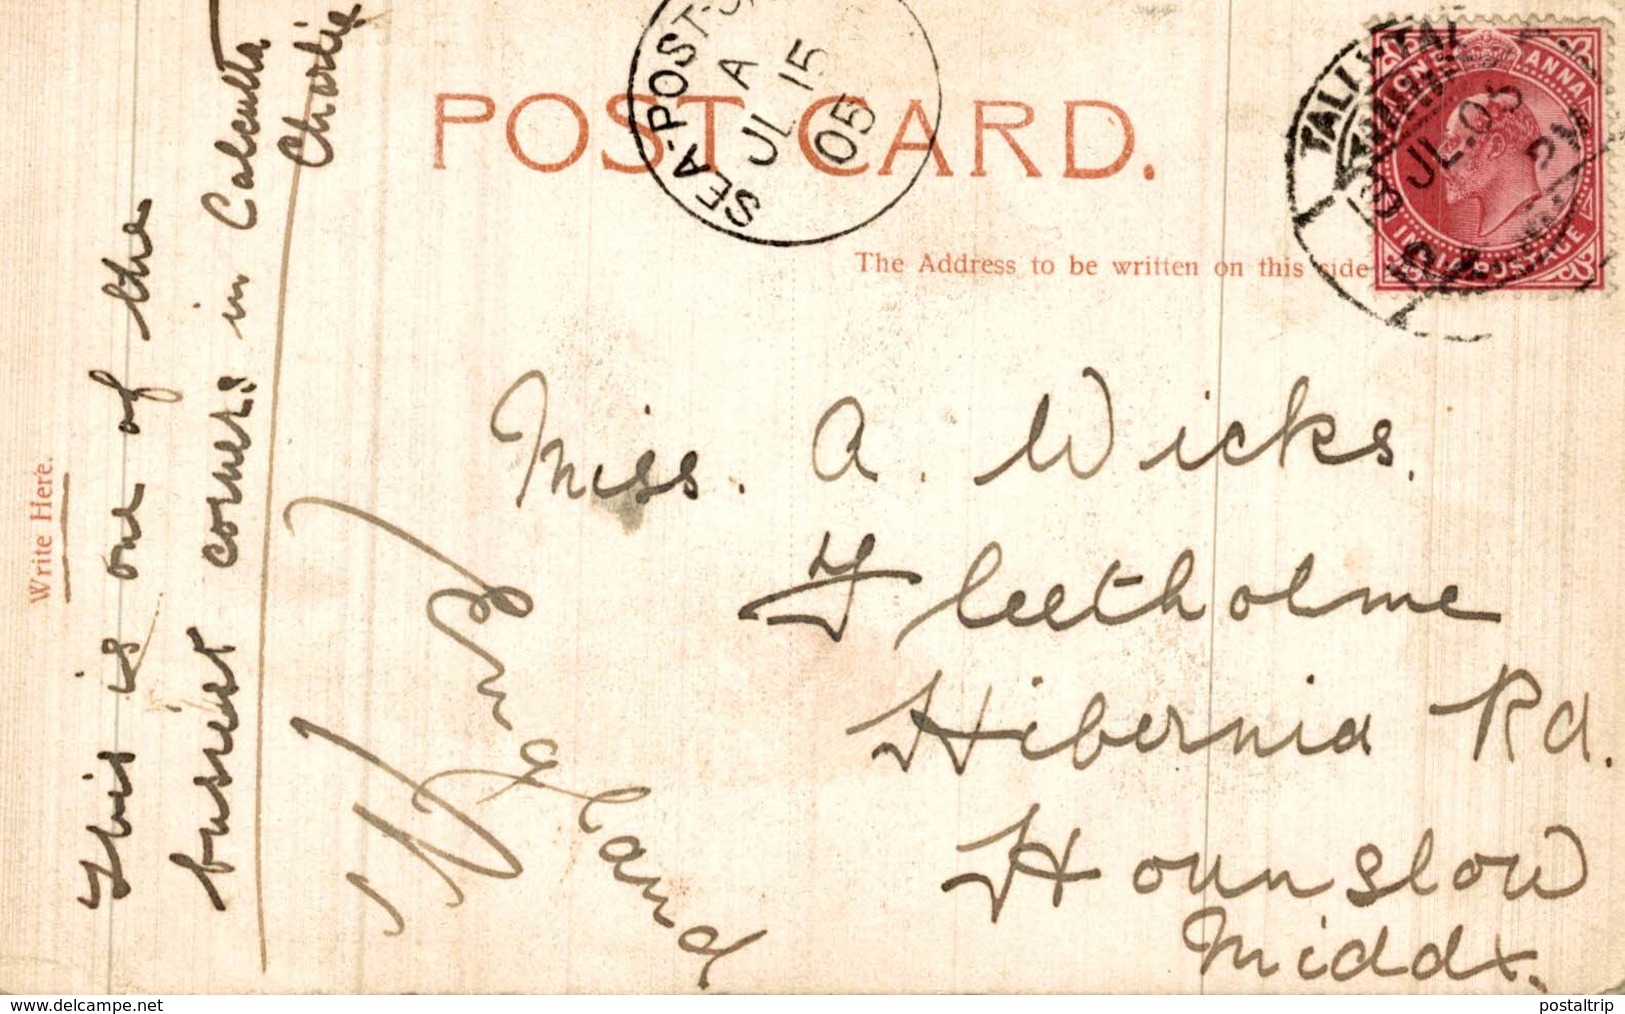 POST CARD.
The Address to be written on this side
SEA-POST-
A
JL 15
05
TALLY-TAL
JL.05
ONE ANNA
INDIA POSTAGE
Write Here.
This is one of the
busiest corners in Calcutta
Charlie
Miss. A. Wicks.
Fleetholme
Hibernia Rd.
Hounslow
Middx.
England
www.delcampe.net
postaltrip